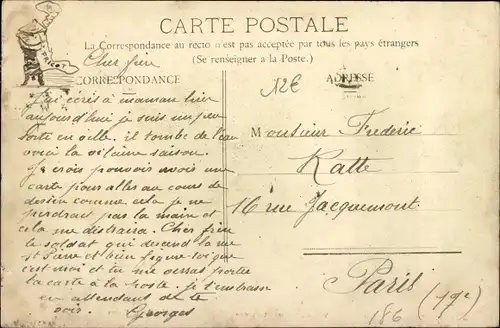 CARTE POSTALE
La Correspondance au recto n'est pas acceptée par tous les pays étrangers
(Se renseigner à la Poste.)
Cher frère
CORRESPONDANCE
ADRESSE
12€
J'ai écris à maman hier
aujourd'hui je suis un peu
sorte en ville. il tombe de l'eau
voici la vilaine saison.
Je crois pouvoir avoir une
carte pour aller au cours de
dessin comme cela je ne
perdrait pas la main et
cela me distraira. Cher frère
le soldat qui descend la rue
St Père et bien figure toi que
c'est moi et tu me verras porter
la carte à la Poste. je t'embrasse
en attendant de te
voir. Georges
Monsieur Frederic
Ratte
16 rue Jacquemont.
Paris
186 (17e)